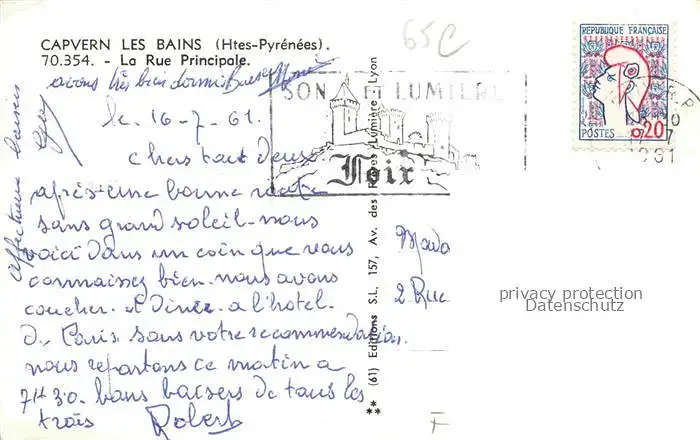 CAPVERN LES BAINS (Htes-Pyrénées).
70.354. - La Rue Principale.
65C
REPUBLIQUE FRANÇAISE
POSTES 0,20
SON ET LUMIERE
Foix
avons très bien dormis
le 16-7-61.
Chers tout deux
après une bonne
sans grand soleil nous
voici dans un coin que vous
connaissez bien. nous avons
coucher et Diner a l'hotel
De Paris sans votre recommendation.
nous repartons ce matin a
7H30. bons baisers de tous les
trois Robert
affectueux baisers
** (61) Editions S.L, 157, Av. des Frères Lumière - Lyon
Mada
2 Rue
privacy protection
Datenschutz
F